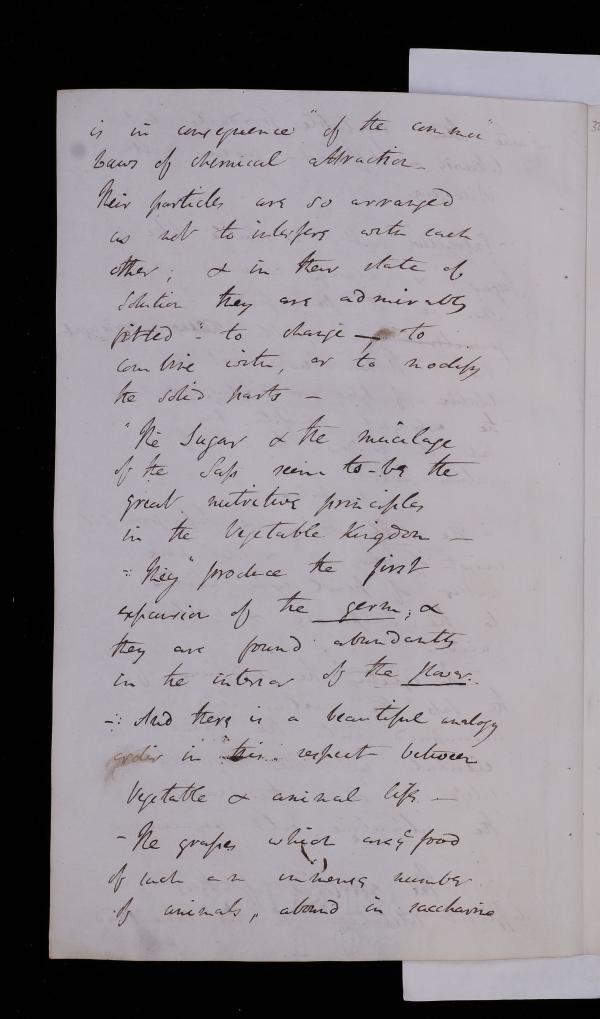 is in consequence "of the common"
Laws of chemical attraction -
Their particles are so arranged
as not to interfere with each
other; & in their state of
solution they are admirably
fitted - to change — to
combine with, or to modify
the solid parts -
"The Sugar & the mucilage
of the Sap seem to be the
great nutritive principles
in the Vegetable Kingdom —
They" produce the first
expansion of the germ; &
they are found abundantly
in the interior of the flower.
And there is a beautiful analogy
order in this respect between
Vegetable & animal life -
- The grapes which are food
of such an immense number
of animals, abound in saccharine